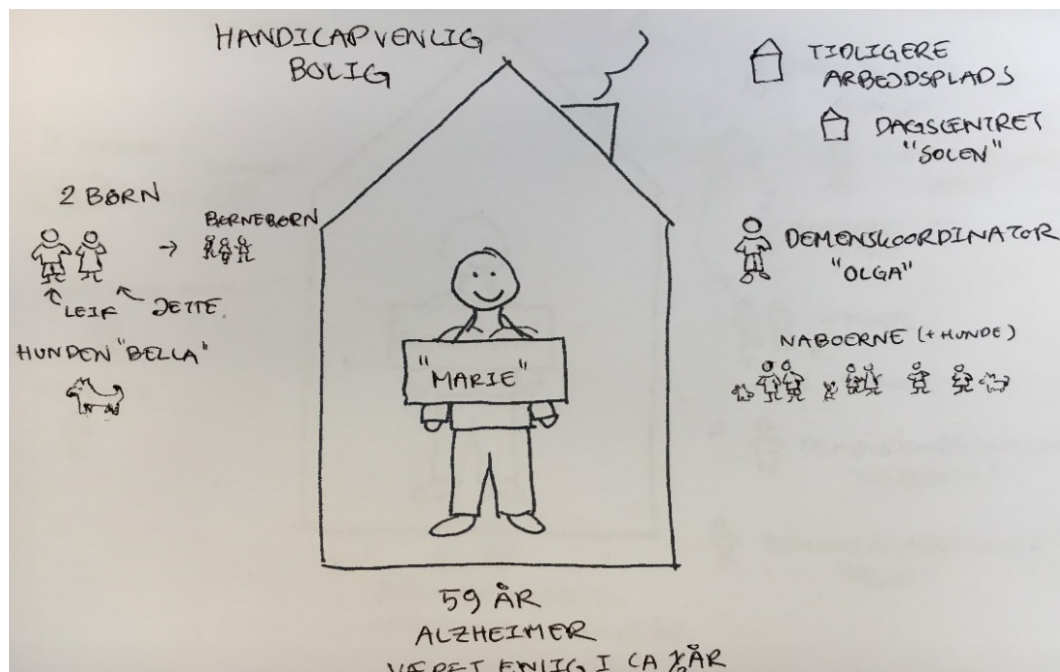 HANDICAPVENLIG
BOLIG
TIDLIGERE
ARBEJDSPLADS
DAGSCENTRET
"SOLEN"
2 BØRN
→ BØRNEBØRN
LEIF
JETTE
HUNDEN "BELLA"
"MARIE"
DEMENSKOORDINATOR
"OLGA"
NABOERNE (+ HUNDE)
59 ÅR
ALZHEIMER
VÆRET ENLIG I CA ½ ÅR